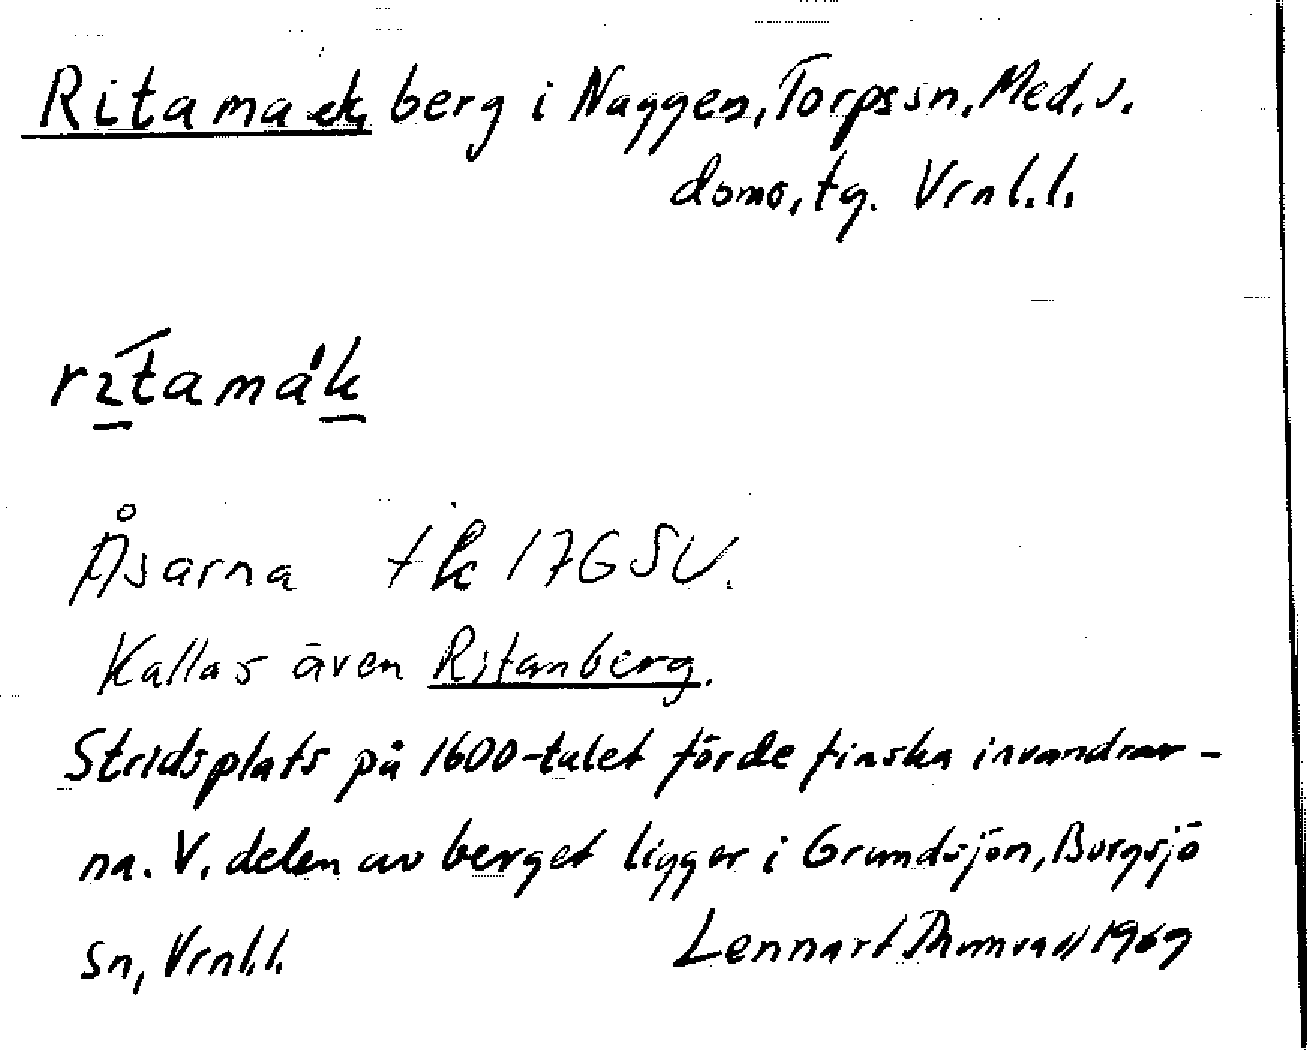 Ritamack, berg i Naggen, Torps sn, Med. v.
doms, tg. Vrnl. l.
rɩ́tamák
Åsarna tk 17G SV.
Kallas även Ritanberg.
Stridsplats på 1600-talet för de finska invandrar-
na. V. delen av berget ligger i Grundsjön, Borgsjö
sn, Vrnl. l.
Lennart 1969